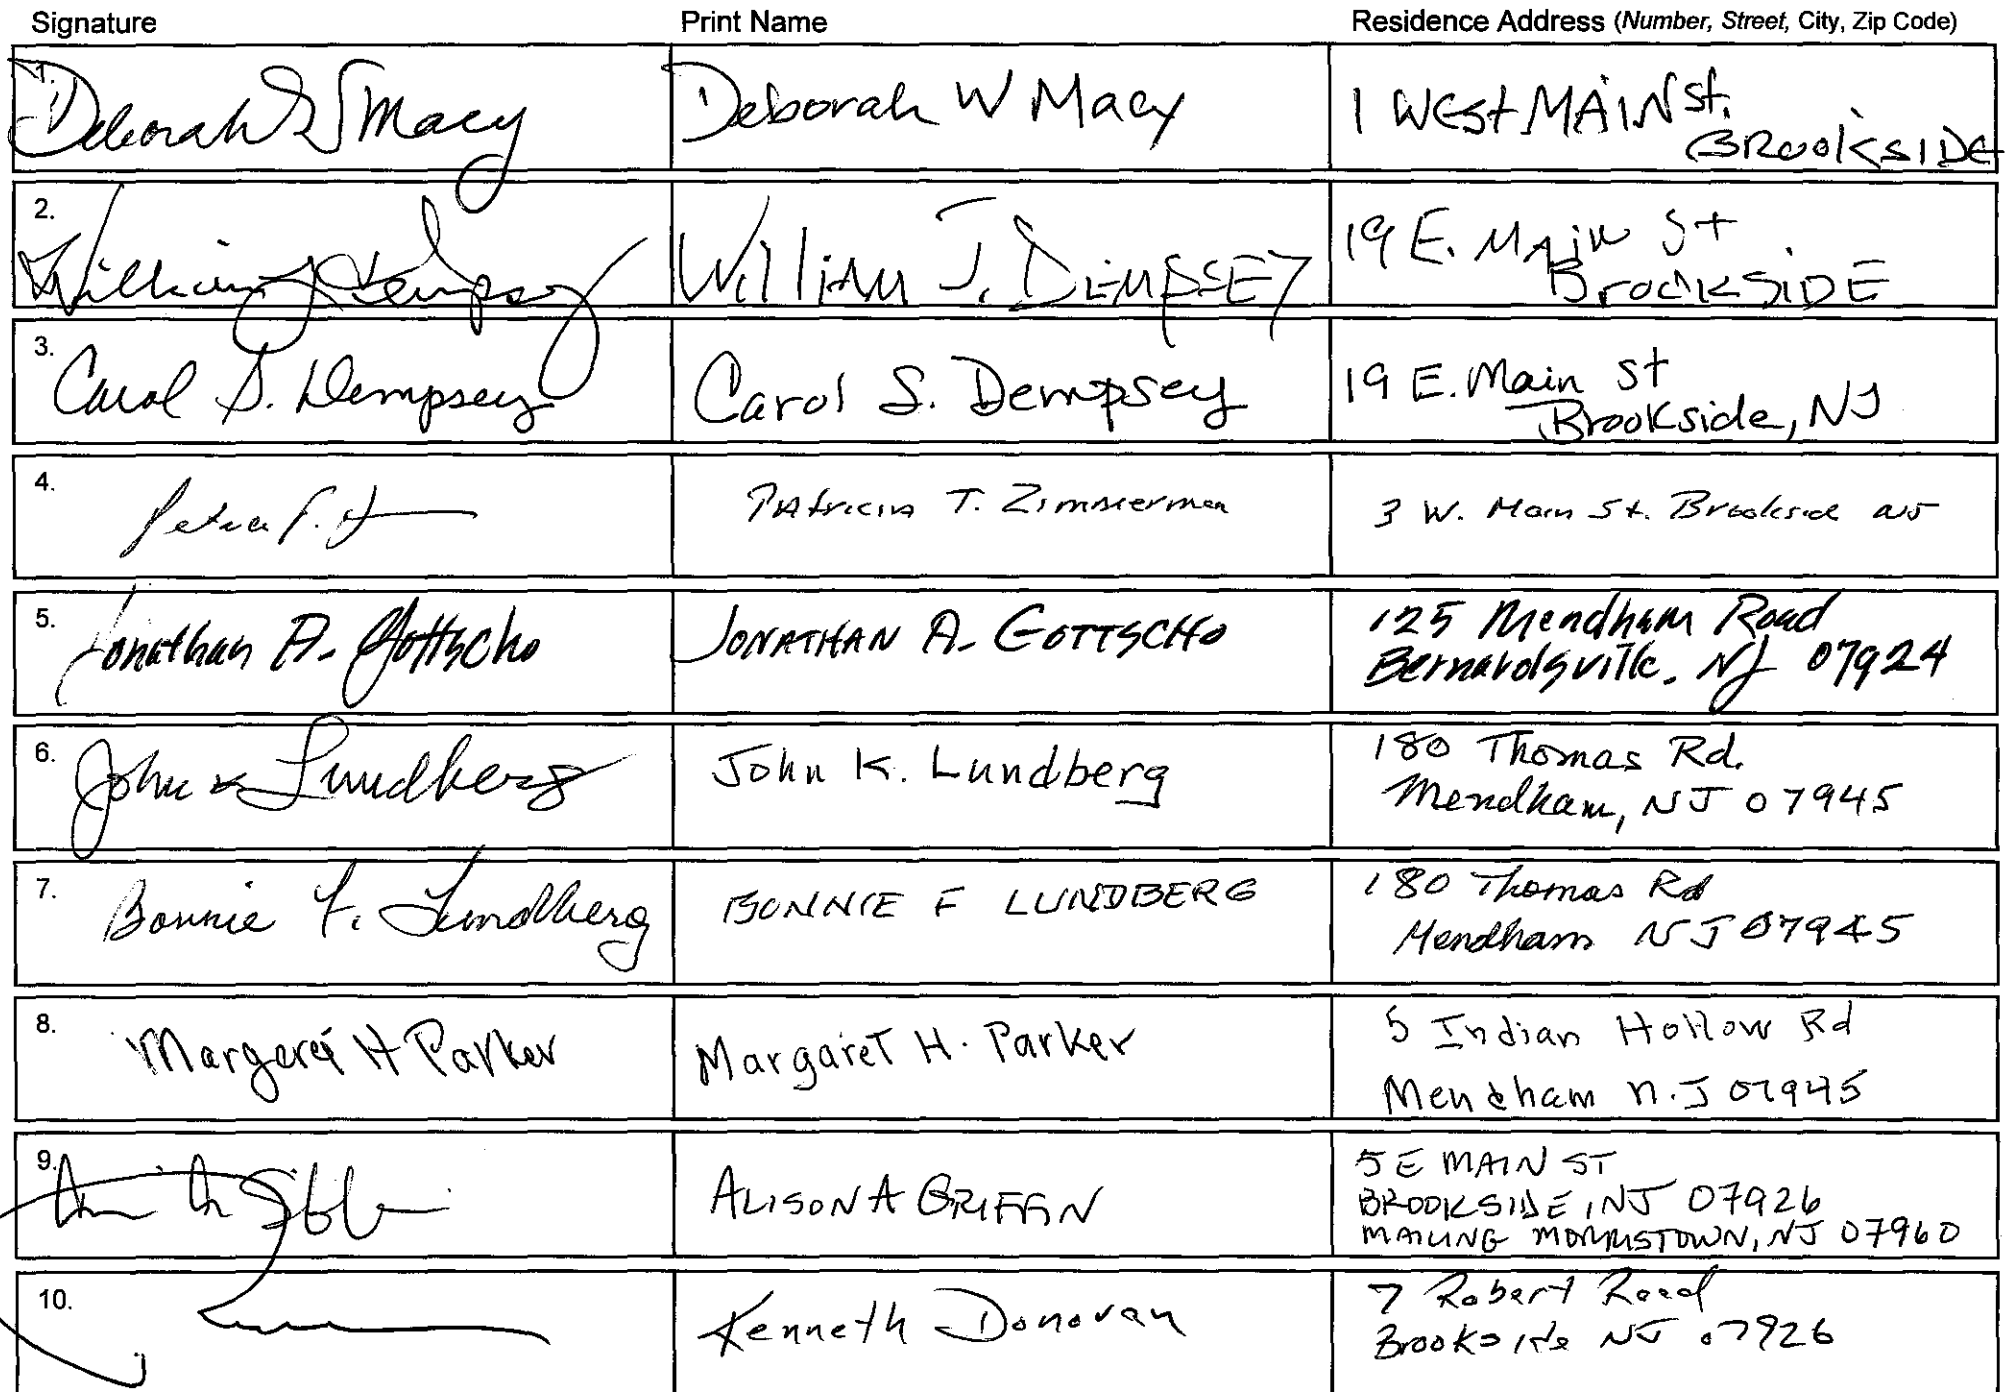 Signature Print Name Residence Address (Number, Street, City, Zip Code)
1. Deborah W Macy Deborah W Macy 1 West MAIN St.
BROOKSIDE
2. William J Dempsey William J. DEMPSEY 19 E. Main St
BROOKSIDE
3. Carol S. Dempsey Carol S. Dempsey 19 E. Main St
Brookside, NJ
4. Patricia T. Zimmerman 3 W. Main St. Brookside NJ
5. Jonathan A. Gottscho JONATHAN A. GOTTSCHO 125 Mendham Road
Bernardsville, NJ 07924
6. John K Lundberg John K. Lundberg 180 Thomas Rd.
Mendham, NJ 07945
7. Bonnie F. Lundberg BONNIE F LUNDBERG 180 Thomas Rd
Mendham NJ 07945
8. Margaret H Parker Margaret H. Parker 5 Indian Hollow Rd
Mendham N.J 07945
9. ALISON A GRIFFIN 5 E MAIN ST
BROOKSIDE, NJ 07926
MAILING MORRISTOWN, NJ 07960
10. Kenneth Donovan 7 Robert Road
Brookside NJ 07926